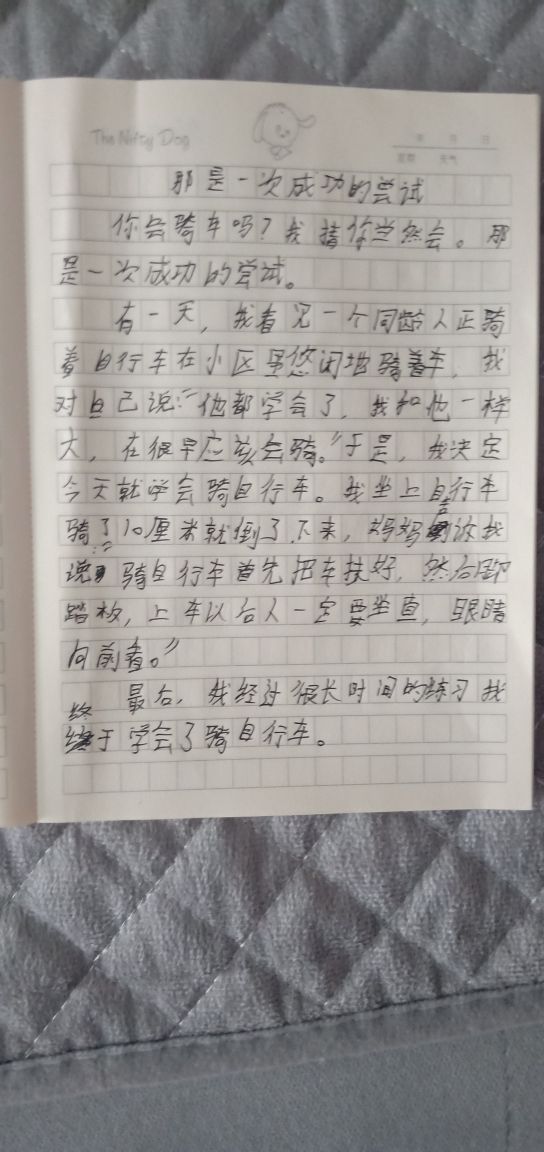 The Nifty Dog
年 月 日
星期 天气
那是一次成功的尝试
你会骑车吗？我猜你当然会。那
是一次成功的尝试。
有一天，我看见一个同龄人正骑
着自行车在小区里悠闲地骑着车，我
对自己说：“他都学会了，我和他一样
大，在很早应该会骑。”于是，我决定
今天就学会骑自行车。我坐上自行车
骑了10厘米就倒了下来，妈妈告诉我
说：“骑自行车首先把车扶好，然后脚
踏板，上车以后人一定要坐直，眼睛
向前看。”
最后，我经过很长时间的练习我
终于学会了骑自行车。